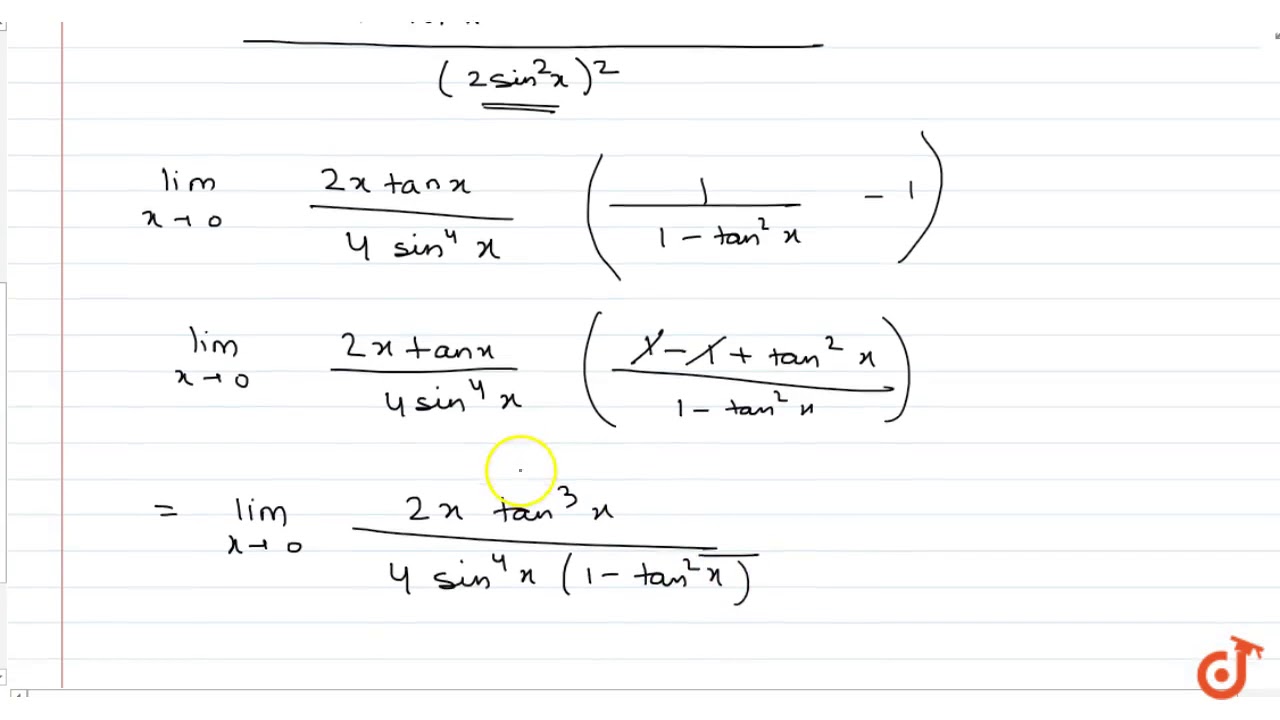 (2sin²x)²
lim x→0 2x tanx / 4 sin⁴x ( 1 / 1 - tan²x - 1 )
lim x→0 2x tanx / 4sin⁴x ( 1 - 1 + tan²x / 1 - tan²x )
= lim x→0 2x tan³x / 4 sin⁴x (1 - tan²x)